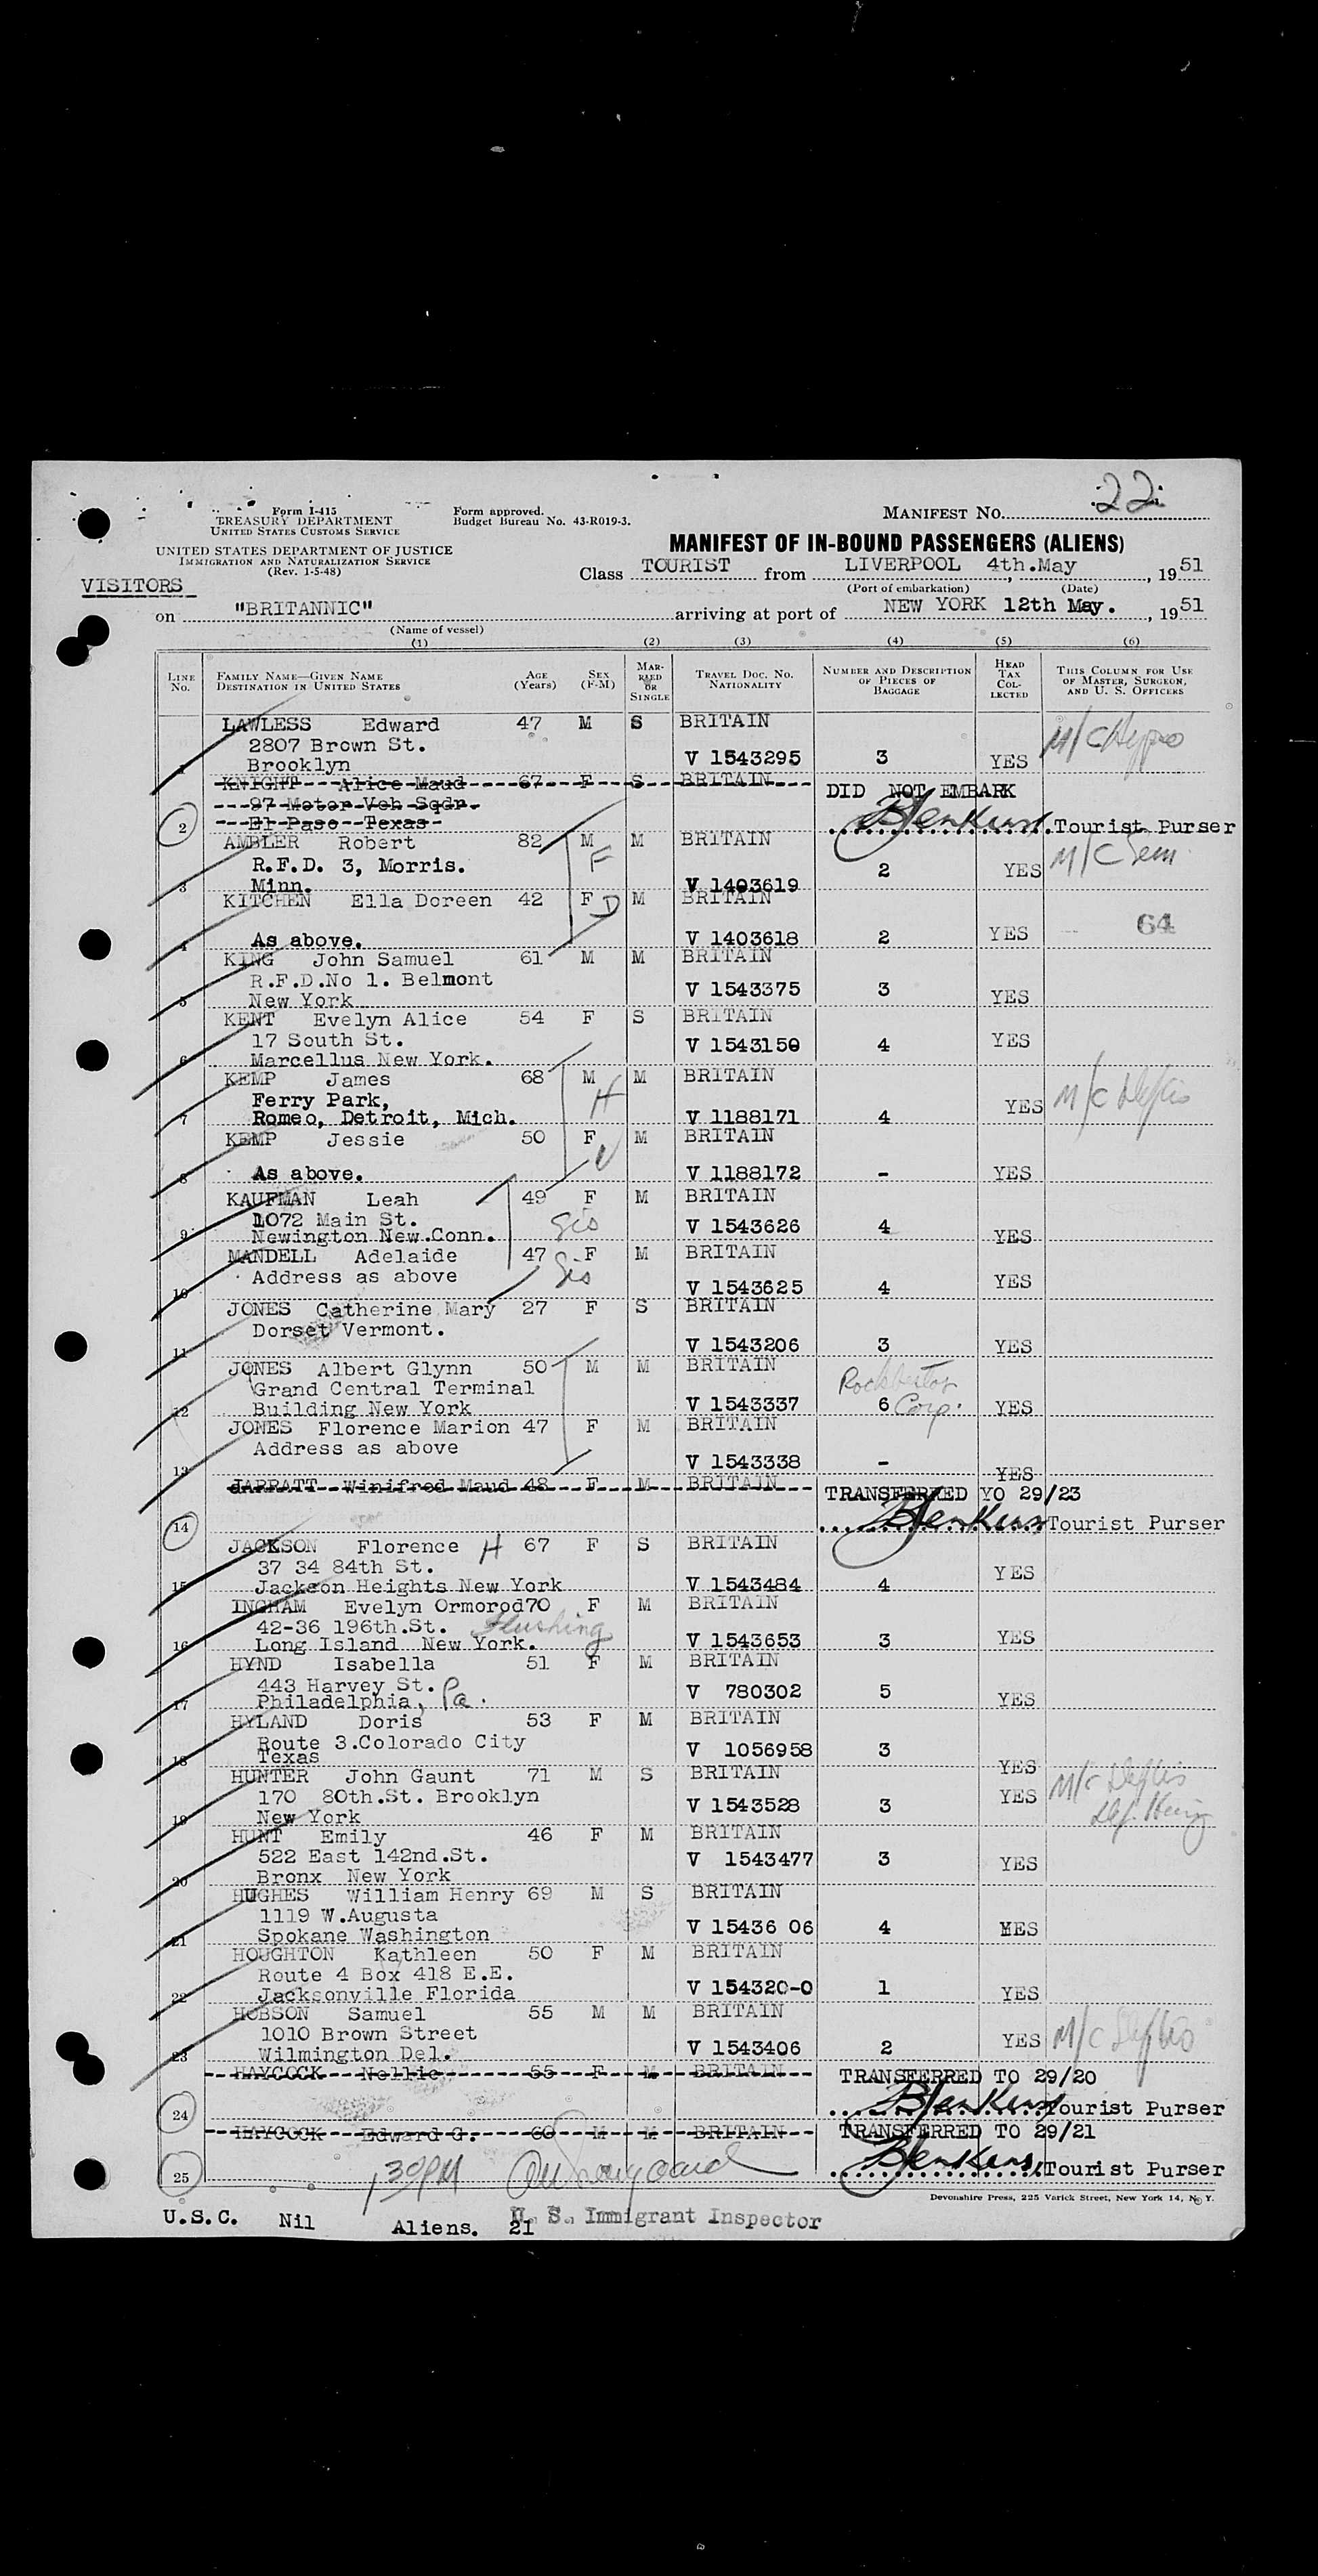 22
Form I-415
TREASURY DEPARTMENT
UNITED STATES CUSTOMS SERVICE
Form approved.
Budget Bureau No. 43-R019-3.
MANIFEST NO.
UNITED STATES DEPARTMENT OF JUSTICE
IMMIGRATION AND NATURALIZATION SERVICE
(Rev. 1-5-48)
MANIFEST OF IN-BOUND PASSENGERS (ALIENS)
VISITORS
Class TOURIST from LIVERPOOL 4th.May, 1951
(Port of embarkation) (Date)
on "BRITANNIC" arriving at port of NEW YORK 12th May., 1951
(Name of vessel)
(1) (2) (3) (4) (5) (6)
LINE No. FAMILY NAME—GIVEN NAME DESTINATION IN UNITED STATES AGE (Years) SEX (F-M) MARRIED OR SINGLE TRAVEL DOC. NO. NATIONALITY NUMBER AND DESCRIPTION OF PIECES OF BAGGAGE HEAD TAX COLLECTED THIS COLUMN FOR USE OF MASTER, SURGEON, AND U. S. OFFICERS
LAWLESS Edward 47 M S BRITAIN M/C
2807 Brown St.
1 Brooklyn V 1543295 3 YES
KNIGHT Alice Maud 67 F S BRITAIN DID NOT EMBARK
97 Motor Veh Sqdn.
2 El Paso Texas Tourist Purser
AMBLER Robert 82 M M BRITAIN M/C
R.F.D. 3, Morris. F 2 YES
3 Minn. V 1403619
KITCHEN Ella Doreen 42 F D M BRITAIN
64
4 As above. V 1403618 2 YES
KING John Samuel 61 M M BRITAIN
R.F.D.No 1. Belmont V 1543375 3
5 New York YES
KENT Evelyn Alice 54 F S BRITAIN
17 South St. V 1543150 4 YES
6 Marcellus New York.
KEMP James 68 M M BRITAIN
Ferry Park, H YES M/C
7 Romeo, Detroit, Mich. V 1188171 4
KEMP Jessie 50 F M BRITAIN
8 As above. V 1188172 - YES
KAUFMAN Leah 49 F M BRITAIN
1072 Main St. Sis V 1543626 4
9 Newington New.Conn. YES
MANDELL Adelaide 47 F M BRITAIN
Address as above Sis YES
10 V 1543625 4
JONES Catherine Mary 27 F S BRITAIN
Dorset Vermont.
11 V 1543206 3 YES
JONES Albert Glynn 50 M M BRITAIN
Grand Central Terminal
12 Building New York V 1543337 6 Corp. YES
JONES Florence Marion 47 F M BRITAIN
Address as above
13 V 1543338 - YES
JARRATT Winifred Maud 48 F M BRITAIN TRANSFERRED YO 29/23
14 Tourist Purser
JACKSON Florence H 67 F S BRITAIN
37 34 84th St. YES
15 Jackson Heights New York V 1543484 4
INGHAM Evelyn Ormorod 70 F M BRITAIN
42-36 196th.St. Flushing
16 Long Island New York. V 1543653 3 YES
HYND Isabella 51 F M BRITAIN
443 Harvey St. V 780302 5
17 Philadelphia, Pa. YES
HYLAND Doris 53 F M BRITAIN
Route 3.Colorado City V 1056958 3
18 Texas YES
HUNTER John Gaunt 71 M S BRITAIN M/C
170 80th.St. Brooklyn V 1543528 3 YES
19 New York
HUNT Emily 46 F M BRITAIN
522 East 142nd.St. V 1543477 3 YES
20 Bronx New York
HUGHES William Henry 69 M S BRITAIN
1119 W.Augusta V 15436 06 4 YES
21 Spokane Washington
HOUGHTON Kathleen 50 F M BRITAIN
Route 4 Box 418 E.E. V 154320-0 1 YES
22 Jacksonville Florida
HOBSON Samuel 55 M M BRITAIN
1010 Brown Street YES M/C
23 Wilmington Del. V 1543406 2
HAYCOCK Nellie 55 F M BRITAIN TRANSFERRED TO 29/20
24 Tourist Purser
HAYCOCK Edward G. 60 M M BRITAIN TRANSFERRED TO 29/21
25 130PM Tourist Purser
Devonshire Press, 225 Varick Street, New York 14, N. Y.
U.S.C. Nil Aliens. 21 U. S. Immigrant Inspector